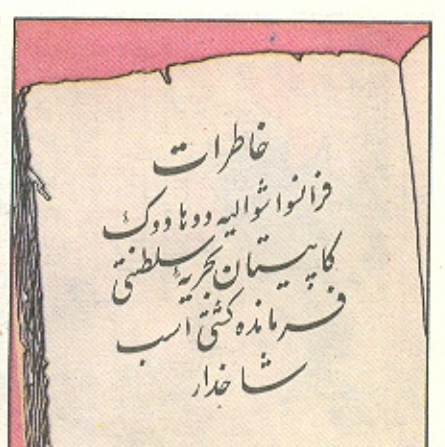 خاطرات
فرانسوا شوالیه دو هادوک
کاپیستان بحریهٔ سلطنتی
فرمانده کشتی اسب
شاخدار